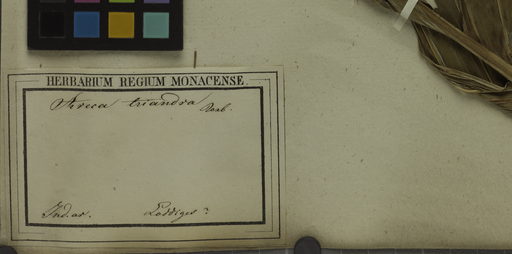 HERBARIUM REGIUM MONACENSE.
Areca triandra Roxb.
Ind. or. Loddiges?